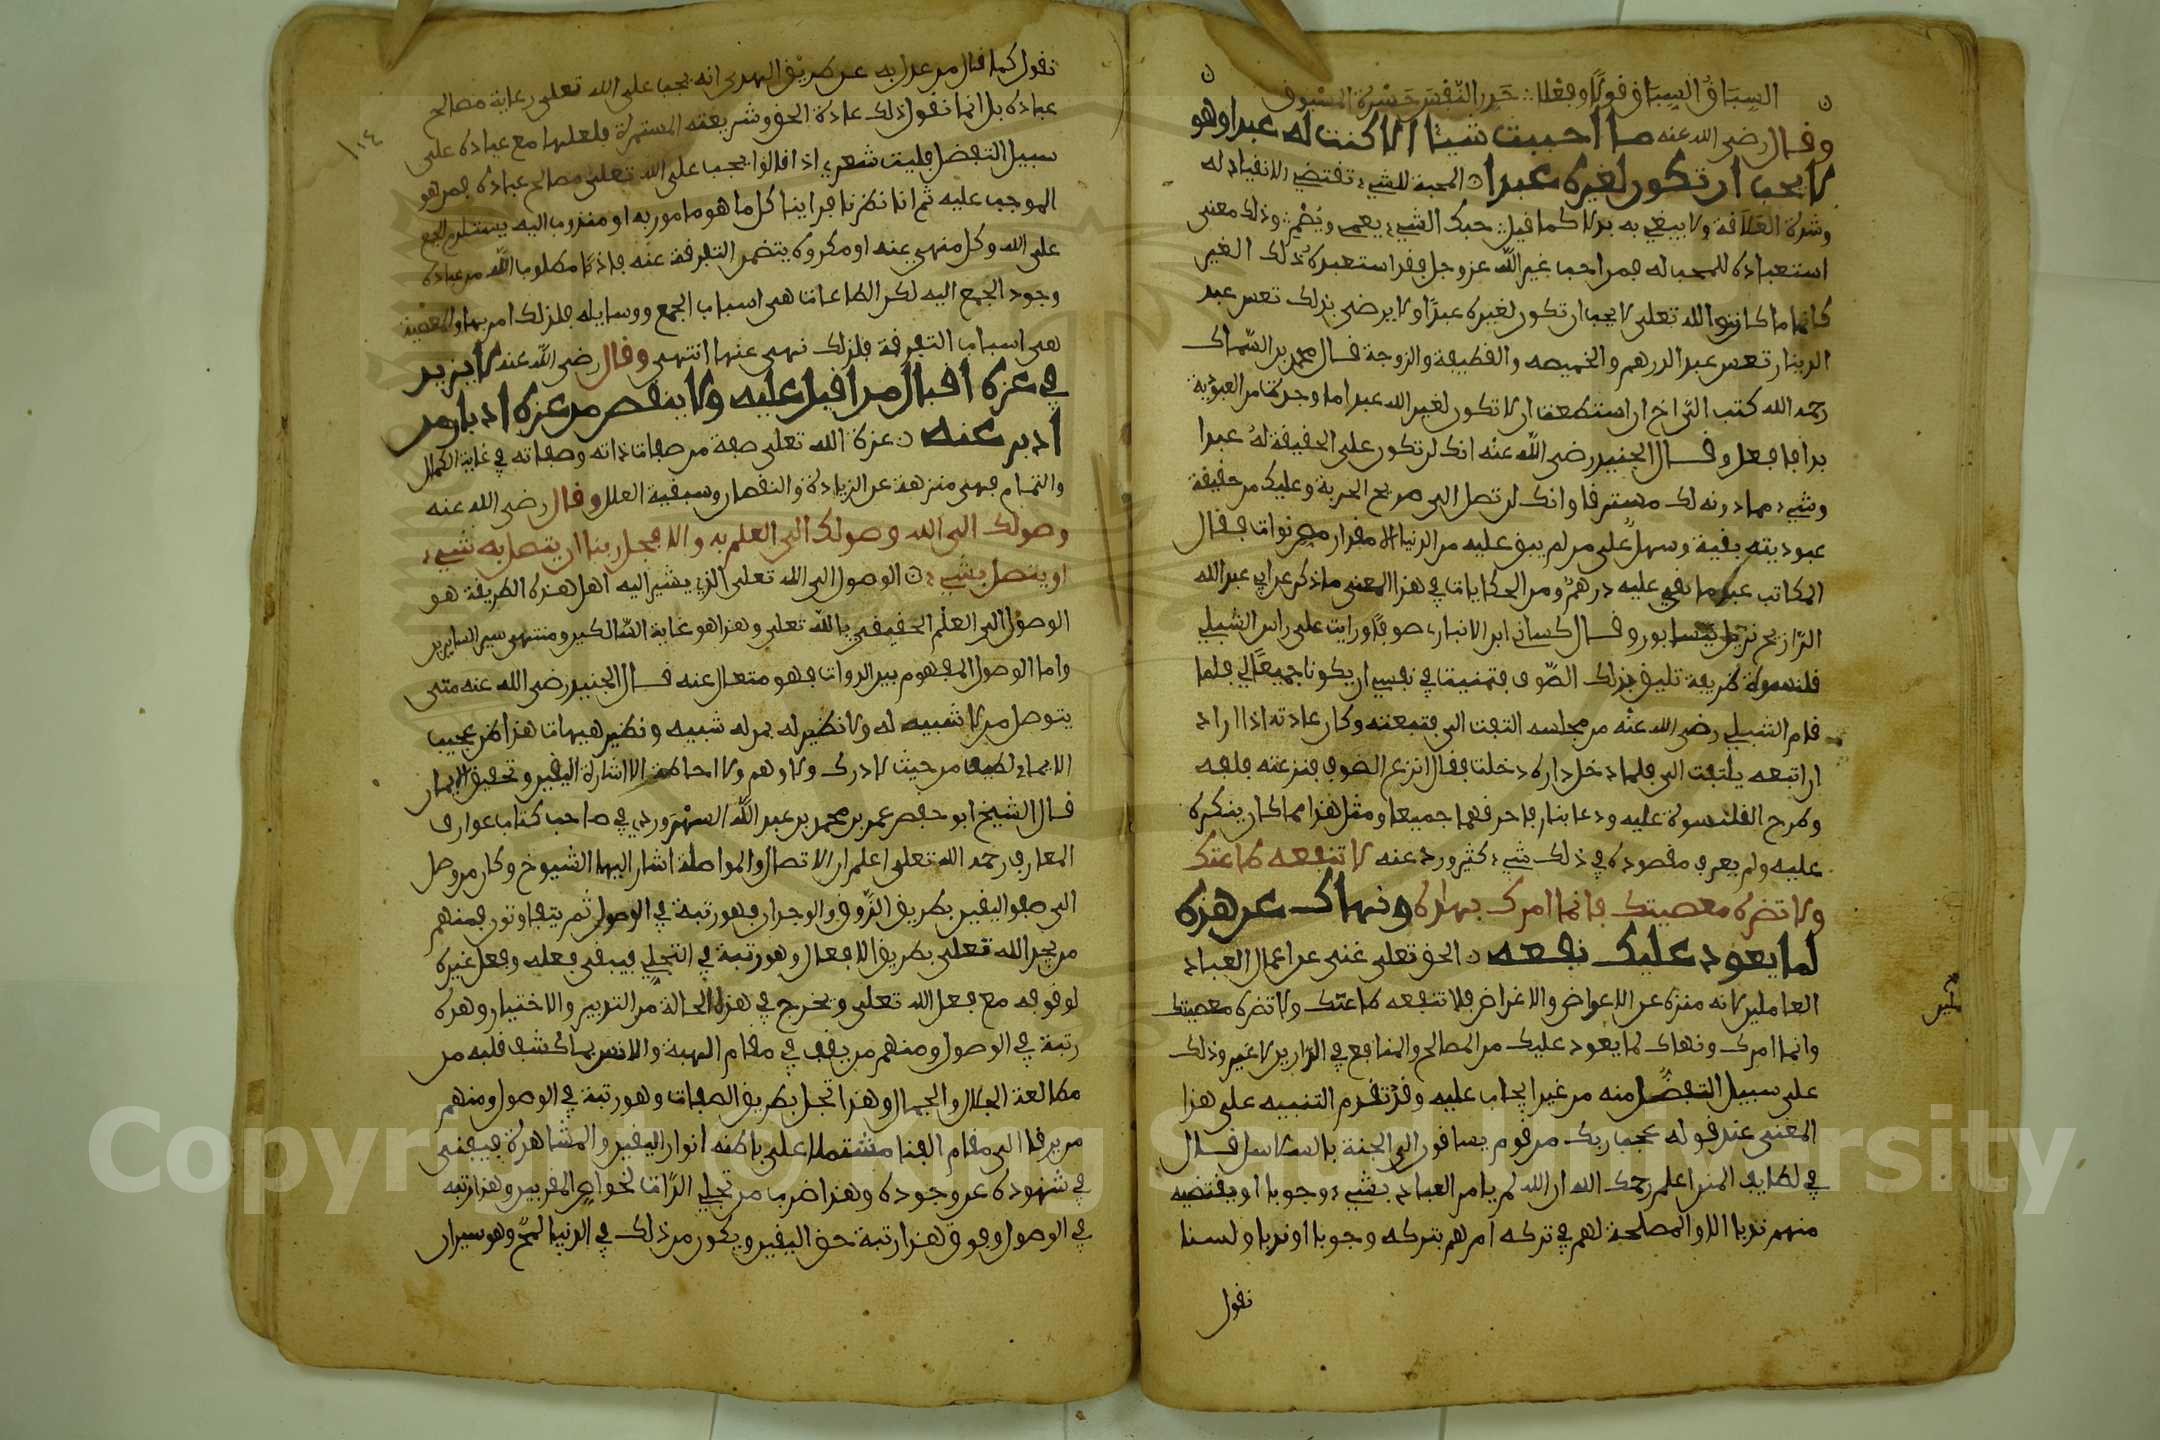 السباق السباق قولا وفعلا حذر النفس حسرة المسبوق
وقال رضي الله عنه ما احببت شيئا الا كنت له عبدا وهو
لا يحب ان تكون لغيره عبدا المحبة للشيء تقتضي الانقياد له
وشدة العلاقة ولا يبغي به بدلا كما قيل حبك الشيء يعمي ويصم وذلك معنى
استعباده للمحب له فمن احب غير الله عز وجل فقد استعبده ذلك الغير
كائنا ما كان والله تعلى لا يحب ان تكون لغيره عبدا ولا يرضى بذلك تعس عبد
الدينار تعس عبد الدرهم والخميصه والقطيفة والزوجة قال محمد بن السماك
رحمه الله كتب الي اخ ان استطعت ان لا تكون لغير الله عبدا ما وجدت من العبودية
بدا فافعل وقال الجنيد رضي الله عنه انك لن تكون على الحقيقة له عبدا
وشيء مما دونه لك مسترقا وانك لن تصل الى صريح الحرية وعليك من حقيقة
عبوديته بقية وسهل على من لم يبق عليه من الدنيا الا مقدار مص نوات فقال
المكاتب عبد ما بقي عليه درهم ومن الحكايات في هذا المعنى ما ذكر عن ابي عبد الله
الرازي نزيل نيسابور قال كساني ابن الانباري صوفا ورايت على راس الشبلي
قلنسوة ظريفة تليق بذلك الصوف فتمنيت في نفسي ان يكونا جميعا لي فلما
قام الشبلي رضي الله عنه من مجلسه التفت الي فتبعته وكان عادته اذا اراد
ان اتبعه يلتفت الي فلما دخل داره دخلت فقال انزع الصوف فنزعته فلفه
وطرح القلنسوة عليه ودعا بنار فاحرقهما جميعا ومثل هذا مما كان ينكره
عليه ولم يعرف مقصوده في ذلك شيء كثير ورد عنه لا تنفعه طاعتك
ولا تضره معصيتك فانما امرك بهذه ونهاك عن هذه
لما يعود عليك نفعه الحق تعلى غني عن اعمال العباد
العاملين لانه منزه عن الاعواض والاغراض فلا تنفعه طاعتك ولا تضره معصيتك
وانما امرك ونهاك لما يعود عليك من المصالح والمنافع في الدارين لا غير وذلك
على سبيل التفضل منه من غير ايجاب عليه وقد تقدم التنبيه على هذا
المعنى عند قوله عجب ربك من قوم يساقون الى الجنة بالسلاسل قال
في لطايف المنن اعلم رحمك الله ان الله لم يامر العباد بشيء وجوبا او يقتضيه
منهم ندبا الا والمصلحة لهم في تركه امرهم بتركه وجوبا او ندبا ولسنا
نقول
١١٤
نقول كما قال من عدل به عن طريق الهدى انه يجب على الله تعلى رعاية مصالح
عباده بل انما نقول ذلك عادة الحق وشريعته المستمرة فلعلها مع عباده على
سبيل التفضل فليت شعري اذا قالوا يجب على الله تعلى مصالح عباده فمن هو
الموجب عليه ثم انا نظرنا فراينا كل ما هو مامور به او مندوب اليه يستلزم الجمع
على الله وكل منهي عنه او مكروه يتضمن التفرقة عنه فاذا مطلوب الله من عباده
وجود الجمع اليه لكن الطاعات هي اسباب الجمع ووسايله فلذلك امر بها والمعصية
هي اسباب التفرقة فلذلك نهى عنها انتهى وقال رضي الله عنه لا يزيد
في عزه اقبال من اقبل عليه ولا ينقص من عزه ادبار من
ادبر عنه عزة الله تعلى صفة من صفات ذاته وصفاته في غاية الكمال
والتمام فهي منزهة عن الزيادة والنقصان وسبقية العلل وقال رضي الله عنه
وصولك الى الله وصولك الى العلم به والا فجل ربنا ان يتصل به شيء
او يتصل بشيء الوصول الى الله تعلى الذي يشير اليه اهل هذه الطريقة هو
الوصول الى العلم الحقيقي بالله تعلى وهذا هو غاية السالكين ومنتهى سير السايرين
واما الوصول المفهوم بين الذوات فهو متعال عنه قال الجنيد رضي الله عنه متى
يتوصل من لا شبيه له ولا نظير له بمن له شبيه ونظير هيهات هذا ظن عجيب
الا بما لطف من حيث لا درك ولا وهم ولا احاطة الا اشارة اليقين وتحقيق الايمان
قال الشيخ ابو حفص عمر بن محمد بن عبد الله السهروردي في صاحب كتاب عوارف
المعارف رحمه الله تعلى اعلم ان الاتصال والمواصلة اشار اليها الشيوخ وكان من وصل
الى صفو اليقين بطريق الذوق والوجدان فهو رتبة في الوصول ثم يتفاوتون فمنهم
من يجد الله تعلى بطريق الافعال وهو رتبة في التجلي فيبقى فعله وفعل غيره
لوقوفه مع فعل الله تعلى ويخرج في هذه الحالة من التدبير والاختيار وهذه
رتبة في الوصول ومنهم من يقف في مقام الهيبة والانس بما كشف قلبه من
مطالعة الجلال والجمال وهذا تجل بطريق الصفات وهو رتبة في الوصول ومنهم
من يرقا الى مقام الفنا مشتملا على باطنه انوار اليقين والمشاهدة فيفنى
في شهوده عن وجوده وهذا ضرب من تجلي الذات لخواص المقربين وهذا رتبه
في الوصول وفوق هذا رتبة حق اليقين ويكون من ذلك في الدنيا لمح وهو سيران